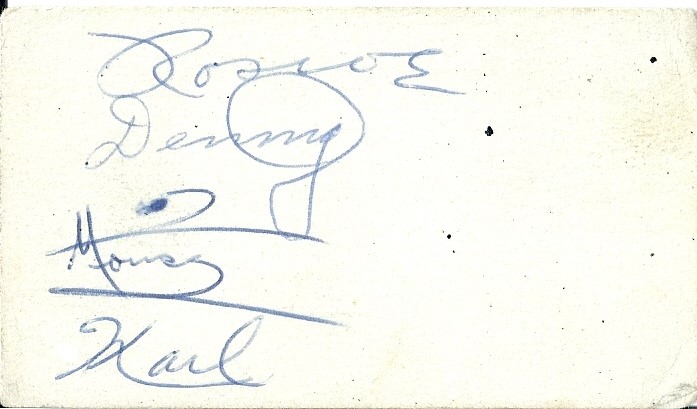 Roscoe
Denny
Mousey
Karl